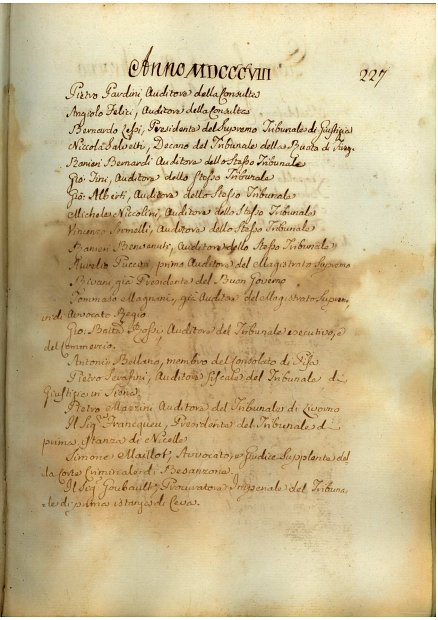 Anno MDCCCVIII
227
Pietro Pardini Auditore della Consulta
Angiolo Felici, Auditore della Consulta
Bernardo Lessi, Presidente del Supremo Tribunale di Giustizia
Niccolò Salvetti, Decano del Tribunale della Ruota di
Ranieri Bernardi Auditore dello Stesso Tribunale
Gio: Tini, Auditore dello Stesso Tribunale
Gio: Alberti, Auditore dello Stesso Tribunale
Michele Niccolini, Auditore dello Stesso Tribunale
Vincenzo Auditore dello Stesso Tribunale
Ranieri Benvenuti, Auditore dello Stesso Tribunale
Aurelio Puccini primo Auditore del Magistrato Supremo
già Presidente del Buon Governo
Tommaso Magnani, già Auditore del Magistrato Supremo,
Avvocato Regio
Gio: Batta Auditore del Tribunale esecutivo, e
del Commercio.
Antonio Bellano, membro del Consolato di Pisa
Pietro Serafini, Auditore fiscale del Tribunale di
Giustizia in Siena
Pietro Mazzini Auditore del Tribunale di Livorno
Il Sig. Presidente del Tribunale di
prima Istanza di
Simone Maillot, Avvocato, e Giudice Supplente del
la Corte Criminale di Besanzone.
Il Sig. Goubault, Procuratore Imperiale del Tribuna
le di prima istanza di Ceva.